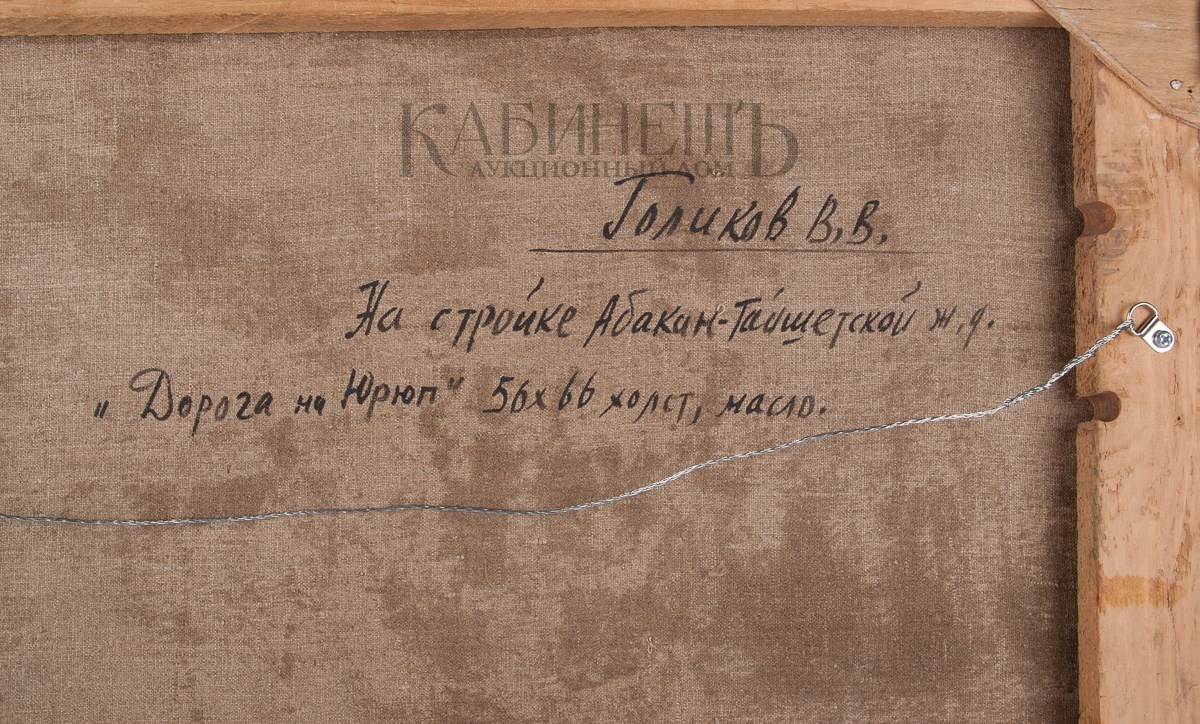 КАБИНЕТЪ
АУКЦИОННЫЙ ДОМ
Голиков В.В.
На стройке Абакан-Тайшетской ж.д.
„Дорога на Юрюп" 56х66 холст, масло.